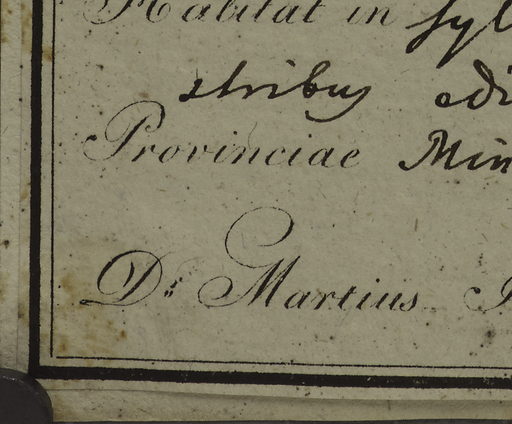 Habitat in syl
stribus edi
Provinciae Min
Dr. Martius